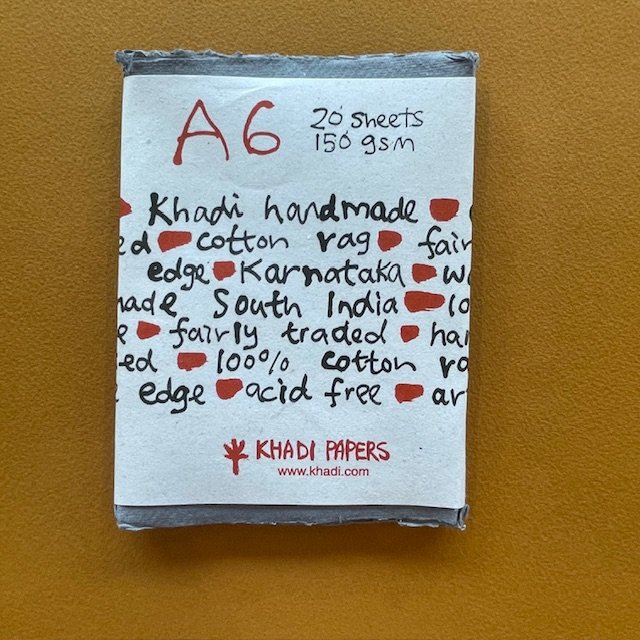 A6
20 sheets
150 gsm
Khadi handmade
ed cotton rag fair
edge Karnataka wa
made South India 10
e fairly traded han
ed 100% cotton ra
edge acid free ar
KHADI PAPERS
www.khadi.com